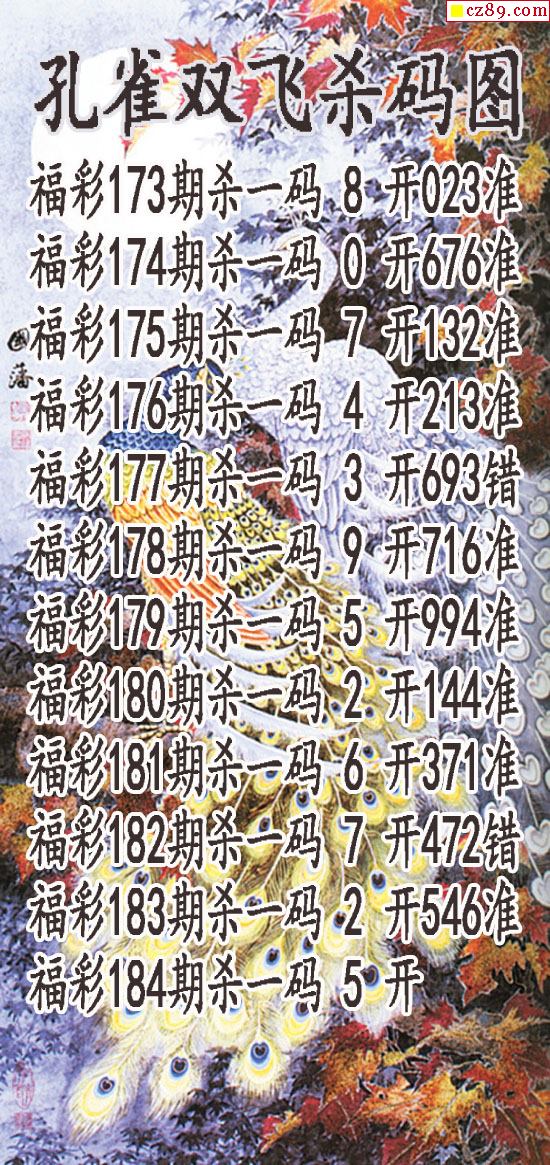 cz89.com
孔雀双飞杀码图
福彩173期杀一码 8 开023准
福彩174期杀一码 0 开676准
福彩175期杀一码 7 开132准
福彩176期杀一码 4 开213准
國藩
福彩177期杀一码 3 开693错
福彩178期杀一码 9 开716准
福彩179期杀一码 5 开994准
福彩180期杀一码 2 开144准
福彩181期杀一码 6 开371准
福彩182期杀一码 7 开472错
福彩183期杀一码 2 开546准
福彩184期杀一码 5 开